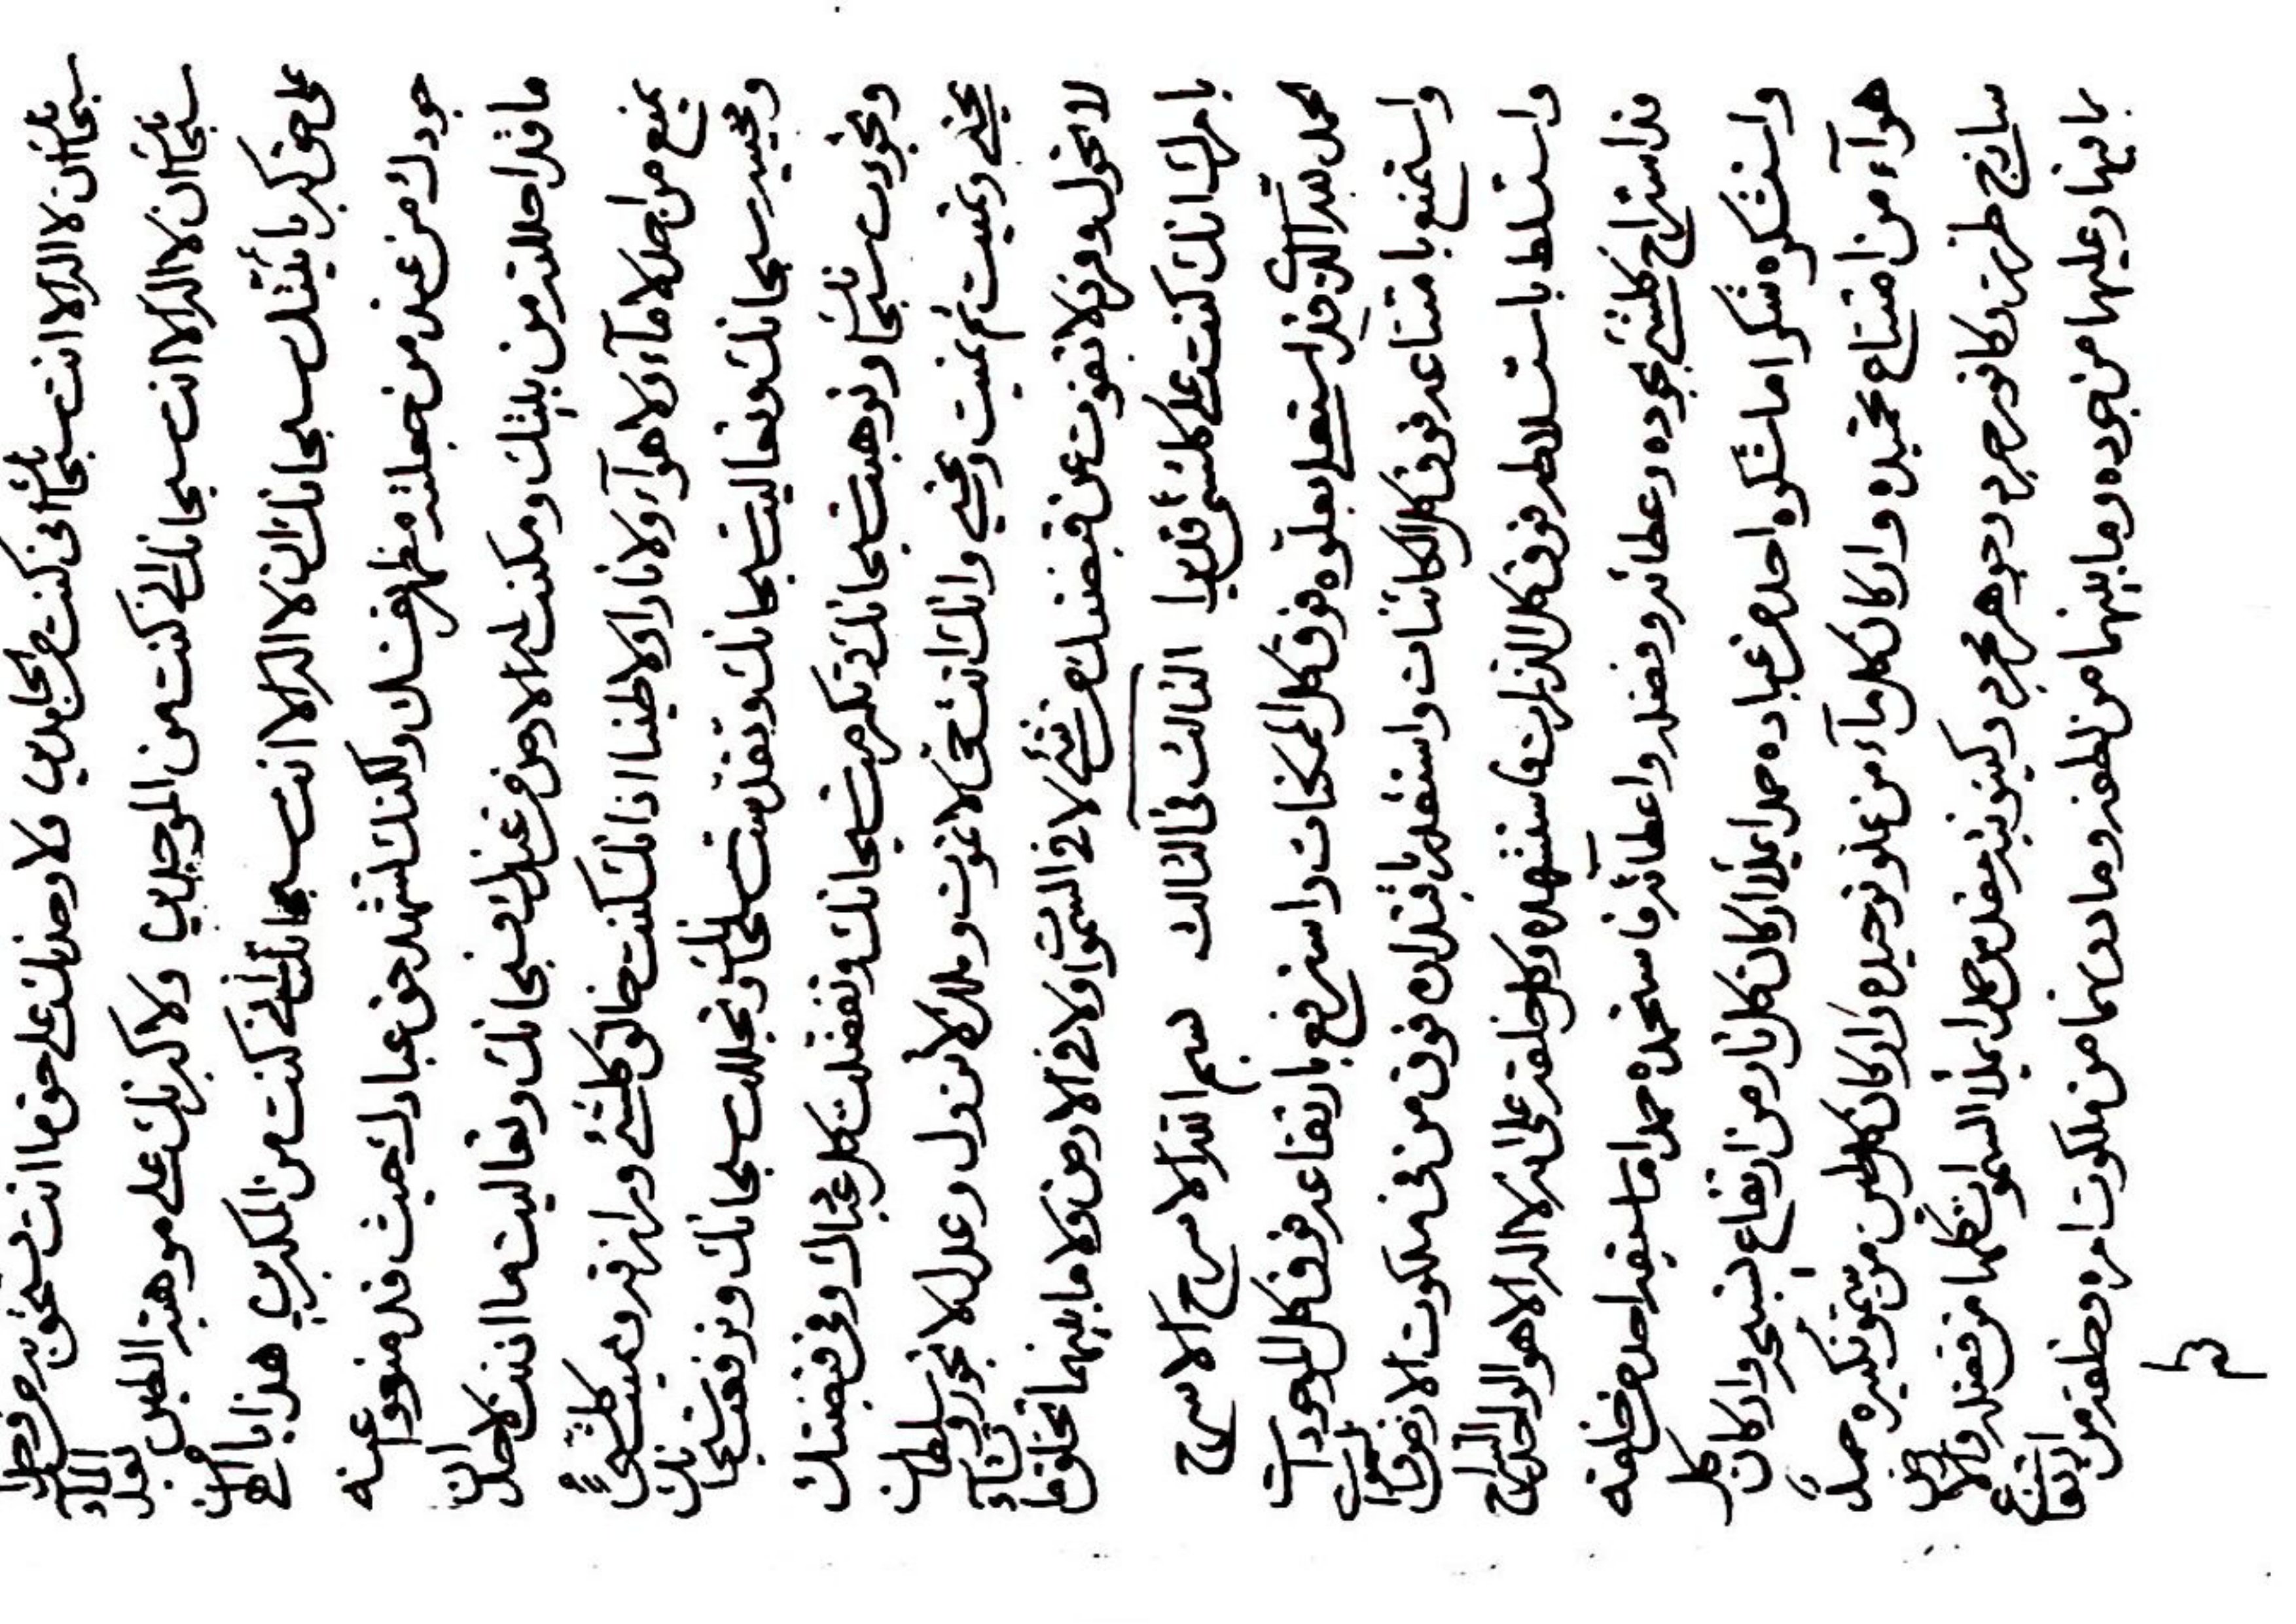 سبحانك ان لا اله الا انت سبحانك انى كنت من الحامدين فلاوحدنك على حق ما انت تستحق به من فضل
سبحانك ان لا اله الا انت سبحانك انى كنت من الموحدين ولاكبرنك على موهبة الطين
على حق كبريائيتك سبحانك ان لا اله الا انت سبحانك انى كنت من المكبرين هذا يا الهى
جودك من عبد من جعلته مظهر نفسك ولكنك لتشهد حق عبادك حيث قد منعوا عنه
ما قد احللته من بيتك ومكنت له الارض من عندك فسبحانك وتعاليت ما اذنت لاحد ان
يمنع من احد لا ماء ولا هواء ولا نارا ولا طينا اذ انك كنت خالق كلشئ ورازقه ومميت كلشئ
ومحييه سبحانك وتعاليت سبحانك وتقدست سبحانك وتجللت سبحانك وترفعت سبحانك
وتجودت سبحانك وتوهبت سبحانك وتكرمت سبحانك وتفضلت كل عبادك وفى قبضتك
تحيى وتميت ثم تميت وتحيى وانك انت حى لا تموت وملك لا تزول وعدل لا تجور وسلطان
لا تحول وفرد لا تفوت عن قبضتك من شئ لا فى السموات ولا فى الارض ولا ما بينهما تخلق ما تشاء
بامرك انك كنت على كلشئ قديرا الثالث فى الثالث بسم الله الاسرج الاسرج
الحمد لله الذى قد استعلى بعلوه فوق كل الممكنات واسترفع بارتفاعه فوق كل الموجودات
واستمنع بامتناعه فوق كل الكائنات واستقدر باقتداره فوق من فى ملكوت الارض والسموات
واستسلط باستسلاطه فوق كل الذرات فاستشهده وكل خلقه على انه لا اله الا هو الواحد السراج
قد استراج كلشئ بجوده وعطائه وفضله واعطائه فاستحمده حمدا ما سبقه احد من خلقه
واستشكره شكرا ما شكره احد من عباده حمدا يملا اركان كل نار من ارتفاع تسبيحه واركان كل
هواء من امتناع تحميده واركان كل ماء من علو توحيده واركان كل طين من سمو تكبيره حمد
ساذج طرز وكافور جرد وجوهر مجرد وكينونية مقدس حمدا يملا السموات كلها من فضله والارض
بما فيها وعليها من جوده وما بينهما من لطفه وما دونهما من ملكوت امره وخلقه من